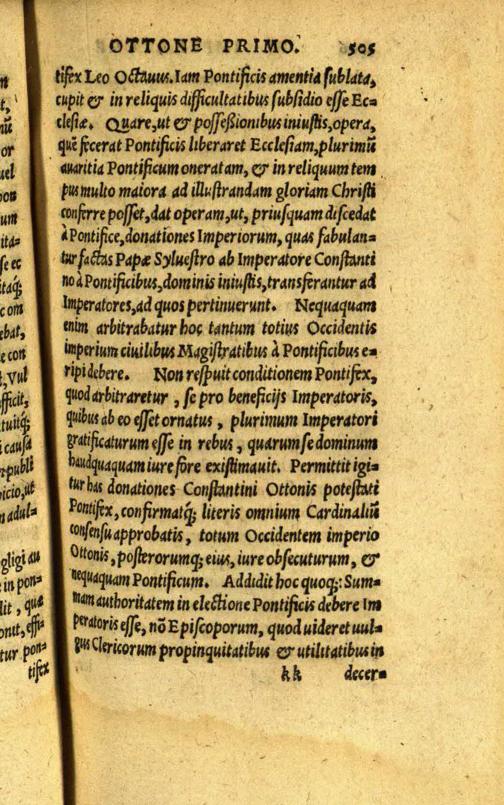 n
t,
mũ
or
uel
pon
um
ita=
se ec
itaq́;
c om
ebat,
e con
t, Vul
fficit,
tuitq́;
i causa
rpubli
icio, ut
n adul=
gligi au
e in pon=
lit, quæ
onit, effi=
tur pon=
tifex
OTTONE PRIMO. 505
tifex Leo Octauus. Iam Pontificis amentia sublata,
cupit & in reliquis difficultatibus subsidio esse Ec=
clesiæ. Quare, ut & posseßionibus iniustis, opera,
quẽ fecerat Pontificis liberaret Ecclesiam, plurimũ
auaritia Pontificum oneratam, & in reliquum tem
pus multo maiora ad illustrandam gloriam Christi
conferre posset, dat operam, ut, priusquam discedat
à Pontifice, donationes Imperiorum, quas fabulan=
tur factas Papæ Syluestro ab Imperatore Constanti
no à Pontificibus, dominis iniustis, transferantur ad
Imperatores, ad quos pertinuerunt. Nequaquam
enim arbitrabatur hoc tantum totius Occidentis
imperium ciuilibus Magistratibus à Pontificibus e=
ripi debere. Non respuit conditionem Pontifex,
quod arbitraretur, se pro beneficijs Imperatoris,
quibus ab eo esset ornatus, plurimum Imperatori
gratificaturum esse in rebus, quarum se dominum
haudquaquam iure fore existimauit. Permittit igi=
tur has donationes Constantini Ottonis potestati
Pontifex, confirmatq́; literis omnium Cardinaliũ
consensu approbatis, totum Occidentem imperio
Ottonis, posterorumq́; eius, iure obsecuturum, &
nequaquam Pontificum. Addidit hoc quoq́;: Sum=
mam authoritatem in electione Pontificis debere Im
peratoris esse, nõ Episcoporum, quod uideret uul=
gus Clericorum propinquitatibus & utilitatibus in
kk decer=